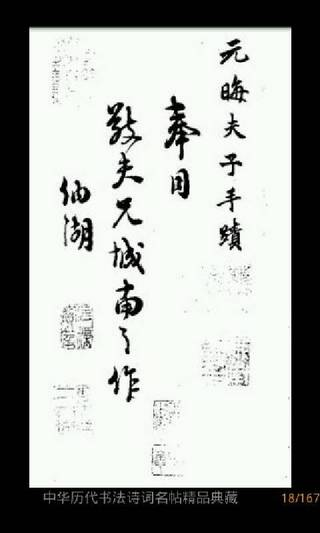 元晦夫子手蹟
奉同
敬夫兄城南之作
纳湖
中华历代书法诗词名帖精品典藏
18/167